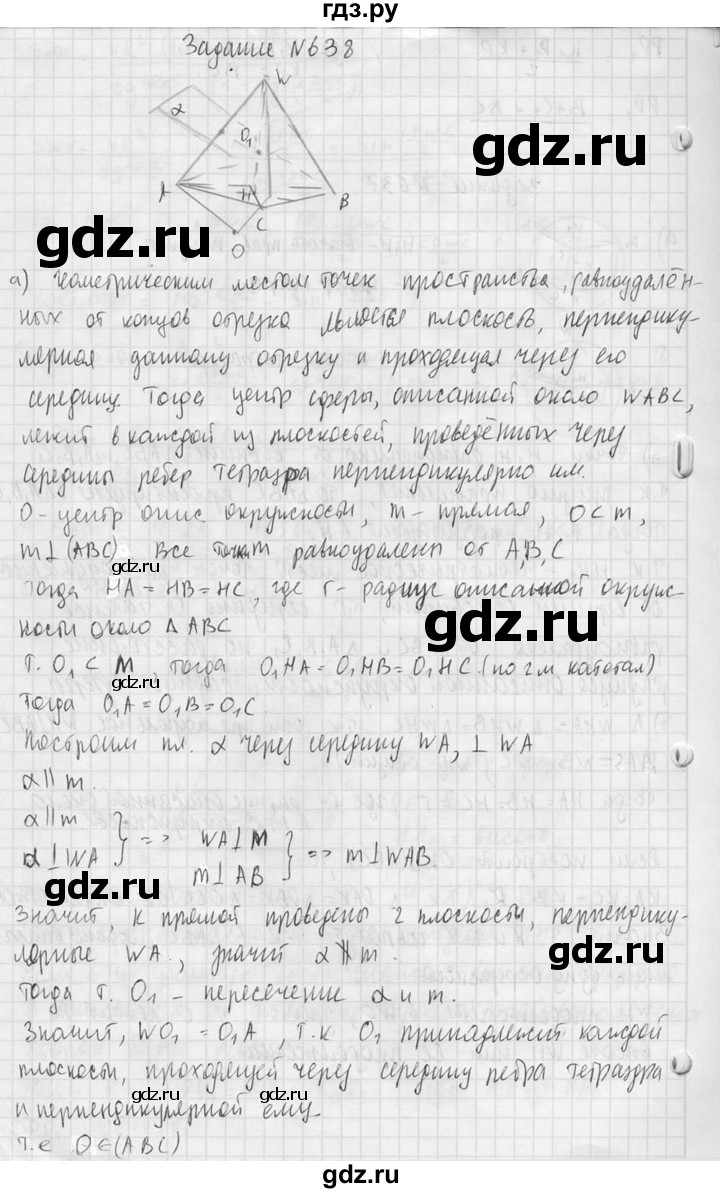 гдз.ру
Задание №638
W
α
O₁
A
H
B
C
O
gdz.ru
gdz.ru
а) Геометрическим местом точек пространства, равноудалён-
ных от концов отрезка является плоскость, перпендику-
лярная данному отрезку и проходящая через его
середину. Тогда центр сферы, описанной около WABC,
лежит в каждой из плоскостей, проведённых через
середины ребер тетраэдра перпендикулярно им.
O - центр опис окружности, m - прямая, O⊂m,
m⊥(ABC). Все точки m равноудалены от A, B, C
Тогда HA = HB = HC, где r - радиус описанной окруж-
ности около Δ ABC
Т. O₁ ⊂ M, тогда O₁HA = O₁HB = O₁HC. (по 2м катетам)
Тогда O₁A = O₁B = O₁C.
Построим пл. α через середину WA, ⊥ WA
α ∥ m.
α ∥ m
α ⊥ WA } => WA ⊥ M
m ⊥ AB } => m ⊥ WAB.
Значит, к прямой проведены 2 плоскости, перпендику-
лярные WA, значит α ∦ m.
Тогда т. O₁ - пересечение α и m.
Значит, WO₁ = O₁A, т.к O₁ принадлежит каждой
плоскости, проходящей через середину ребра тетраэдра
и перпендикулярной ему.
т.е O∈(ABC)
gdz.ru
gdz.ru
gdz.ru
gdz.ru
gdz.ru
gdz.ru
gdz.ru
gdz.ru